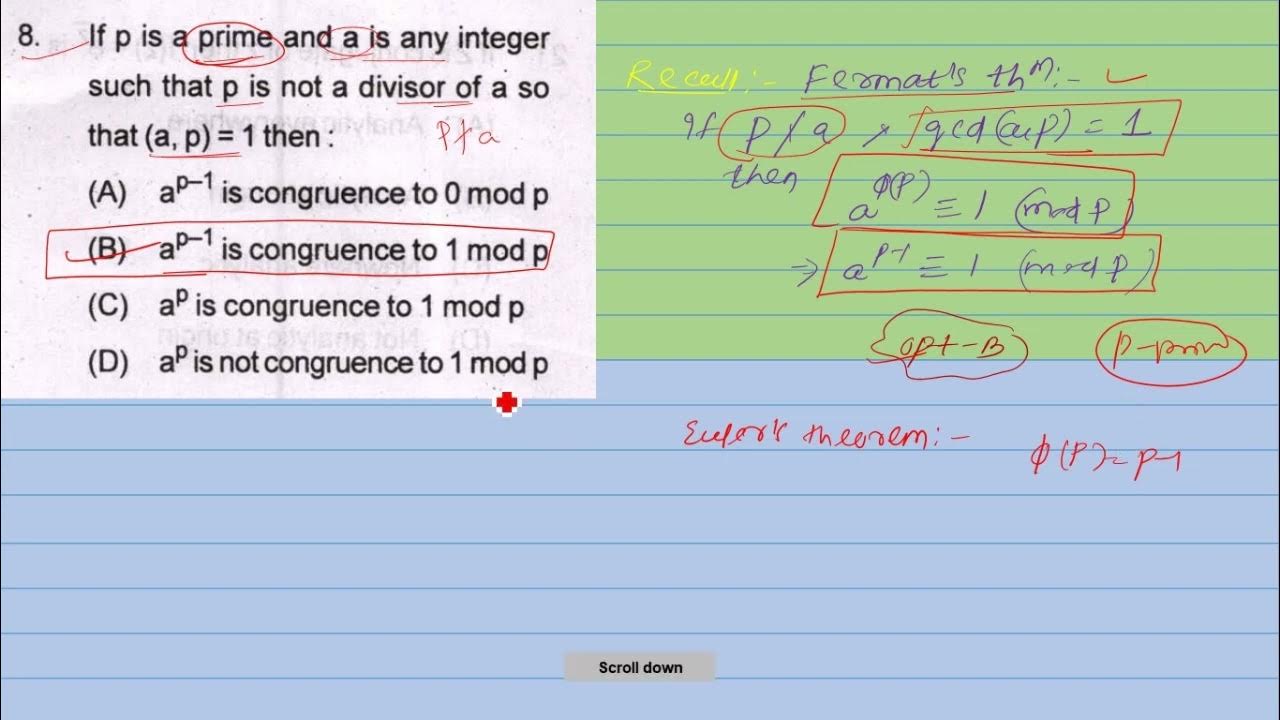 8. If p is a prime and a is any integer
such that p is not a divisor of a so
that (a, p) = 1 then :
p ∤ a
(A) a^{p–1} is congruence to 0 mod p
(B) a^{p–1} is congruence to 1 mod p
(C) a^p is congruence to 1 mod p
(D) a^p is not congruence to 1 mod p
Recall:- Fermat's thm:-
If p ∤ a, gcd(a,p) = 1
then
a^{ϕ(p)} ≡ 1 (mod p)
⇒ a^{p-1} ≡ 1 (mod p)
opt-B
Euler's theorem:-
ϕ(p) = p-1
Scroll down